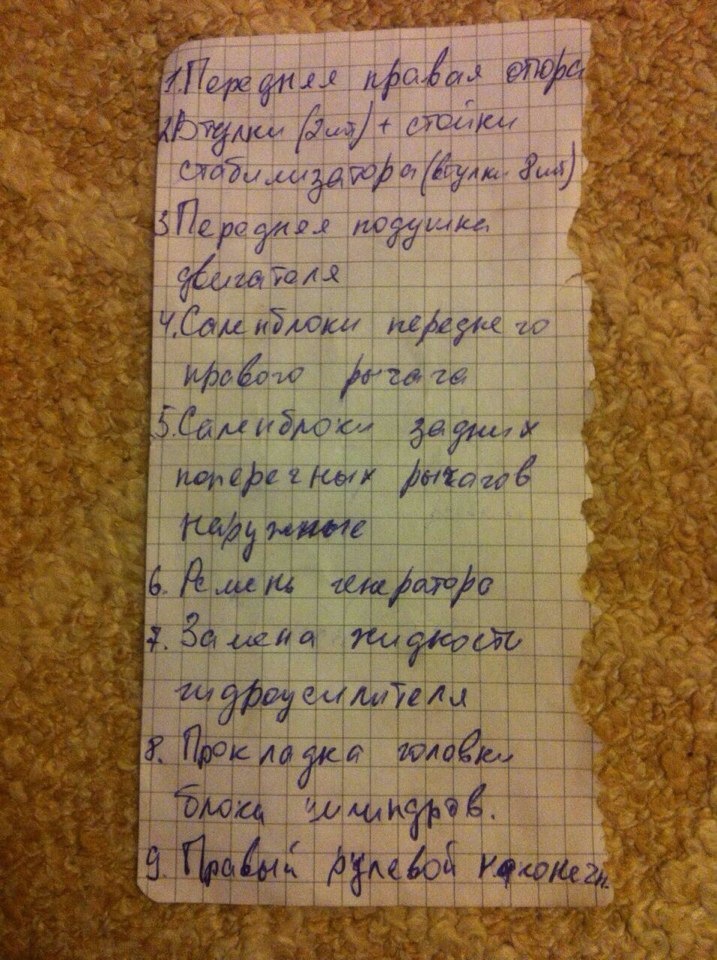 1. Передняя правая опора
2. Втулки (2шт) + стойки
стабилизатора (втулки 8шт)
3. Передняя подушка
двигателя
4. Саленблоки переднего
правого рычага
5. Саленблоки задних
поперечных рычагов
наружные
6. Ремень генератора
7. Замена жидкости
гидроусилителя
8. Прокладка головки
блока цилиндров.
9. Правый рулевой наконечн.